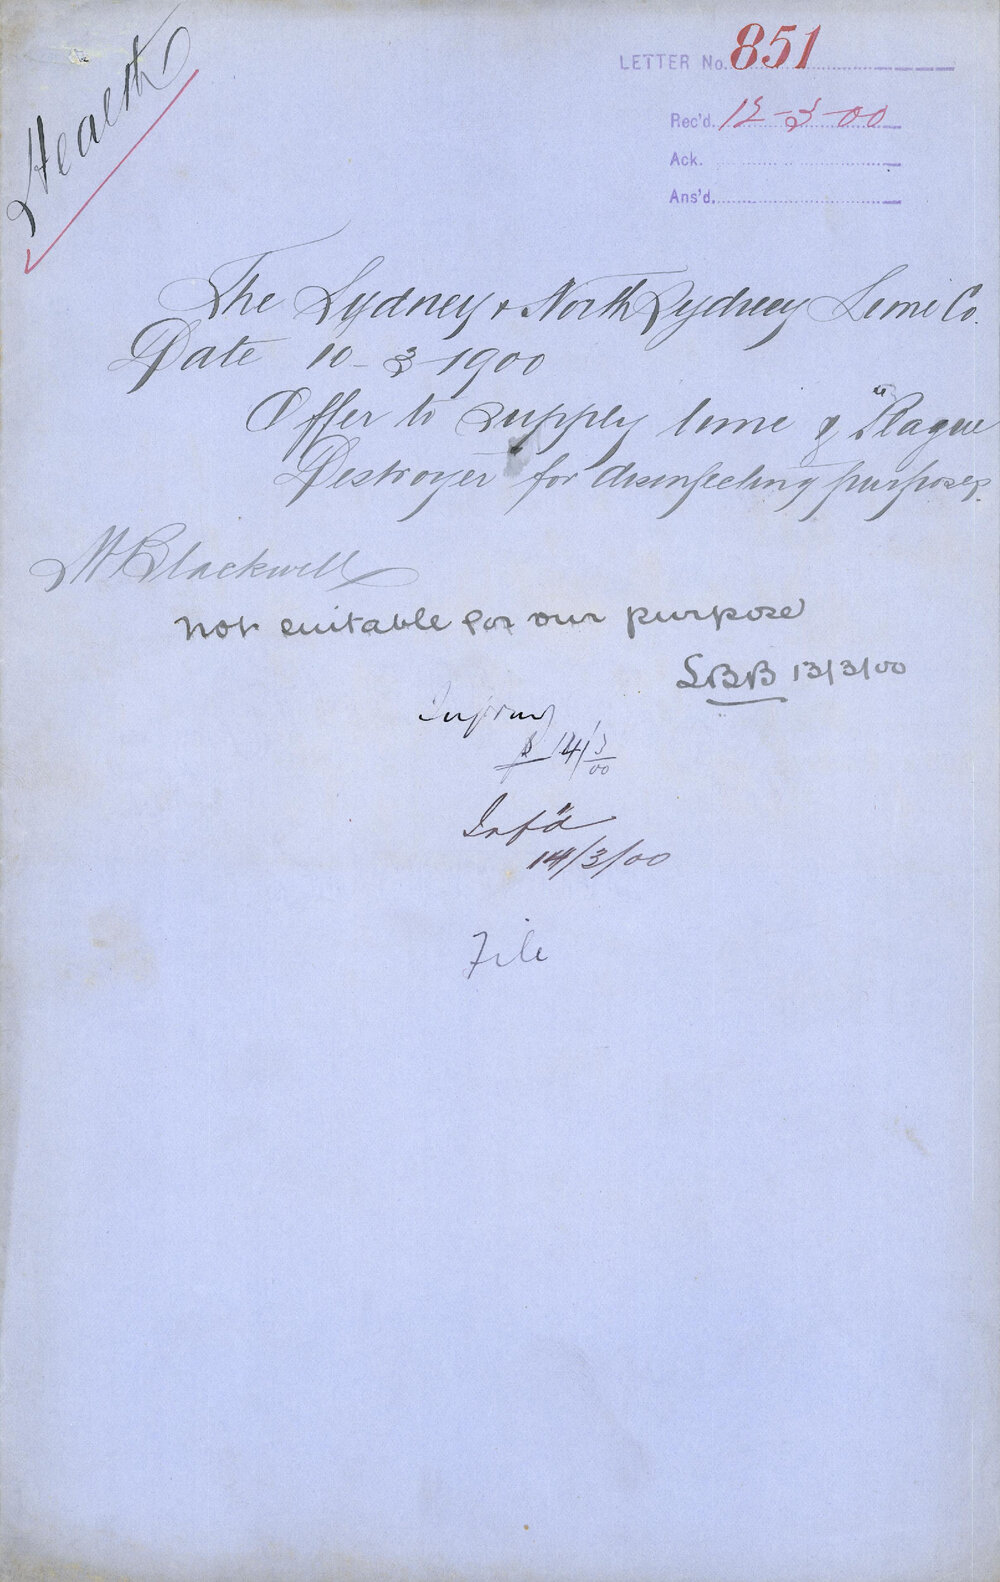 Health
LETTER No. 851
Rec'd. 12-3-00
Ack.
Ans'd.
The Sydney & North Sydney Lime Co.
Date 10-3-1900
Offer to supply lime & "Plague
Destroyer" for disinfecting purposes.
Mr Blackwell
Not suitable for our purpose
LBB 13/3/00
Inform
14/3/00
Inf'd
14/3/00
File